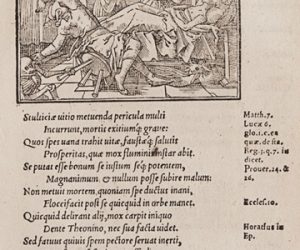 Stulticiæ uitio metuenda pericula multi
Incurrunt, mortis exitiumq; graue:
Quos spes uana trahit uitæ, faustaq; saluit
Prosperitas, quæ mox fluminis instar abit.
Se putat esse bonum se iustum seq; potentem,
Magnanimum, & nullum posse subire malum:
Non metuit mortem, quoniam spe ductus inani,
Floccifacit post se quicquid in orbe manet.
Quicquid delirant alij, mox carpit iniquo
Dente Theonino, nec sua facta uidet.
Sed fatuus quiuis spem pectore seruat inerti,
Matth.7.
Lucæ 6.
glo.i.c.ea
quæ. de
Erg.1.q.7. in
dicet.
Prouer.14.
& 16.
Ecclef.10.
Horatius in
Ep.